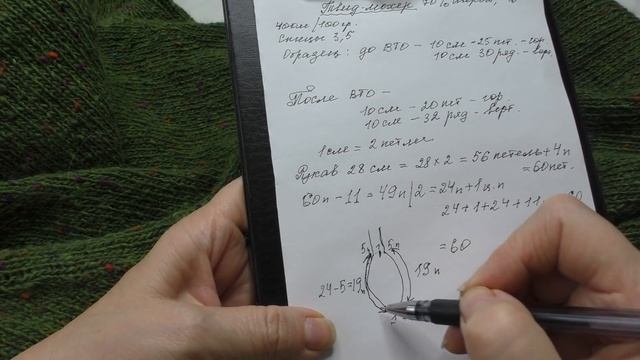 Твид-мохер 70%
400м/100гр.
Спицы 3,5
Образец: до ВТО - 10см - 25пет. - гор.
10см 30ряд. - верт.
После ВТО -
10см - 20пет - гор.
10см - 32 ряд - верт.
1см = 2 петли.
Рукав 28 см = 28×2 = 56 петель + 4п
= 60пет.
60п - 11 = 49п/2 = 24п + 1ц.п
24 + 1 + 24 + 11
= 60
5п 1 5п
24-5=19п
19п